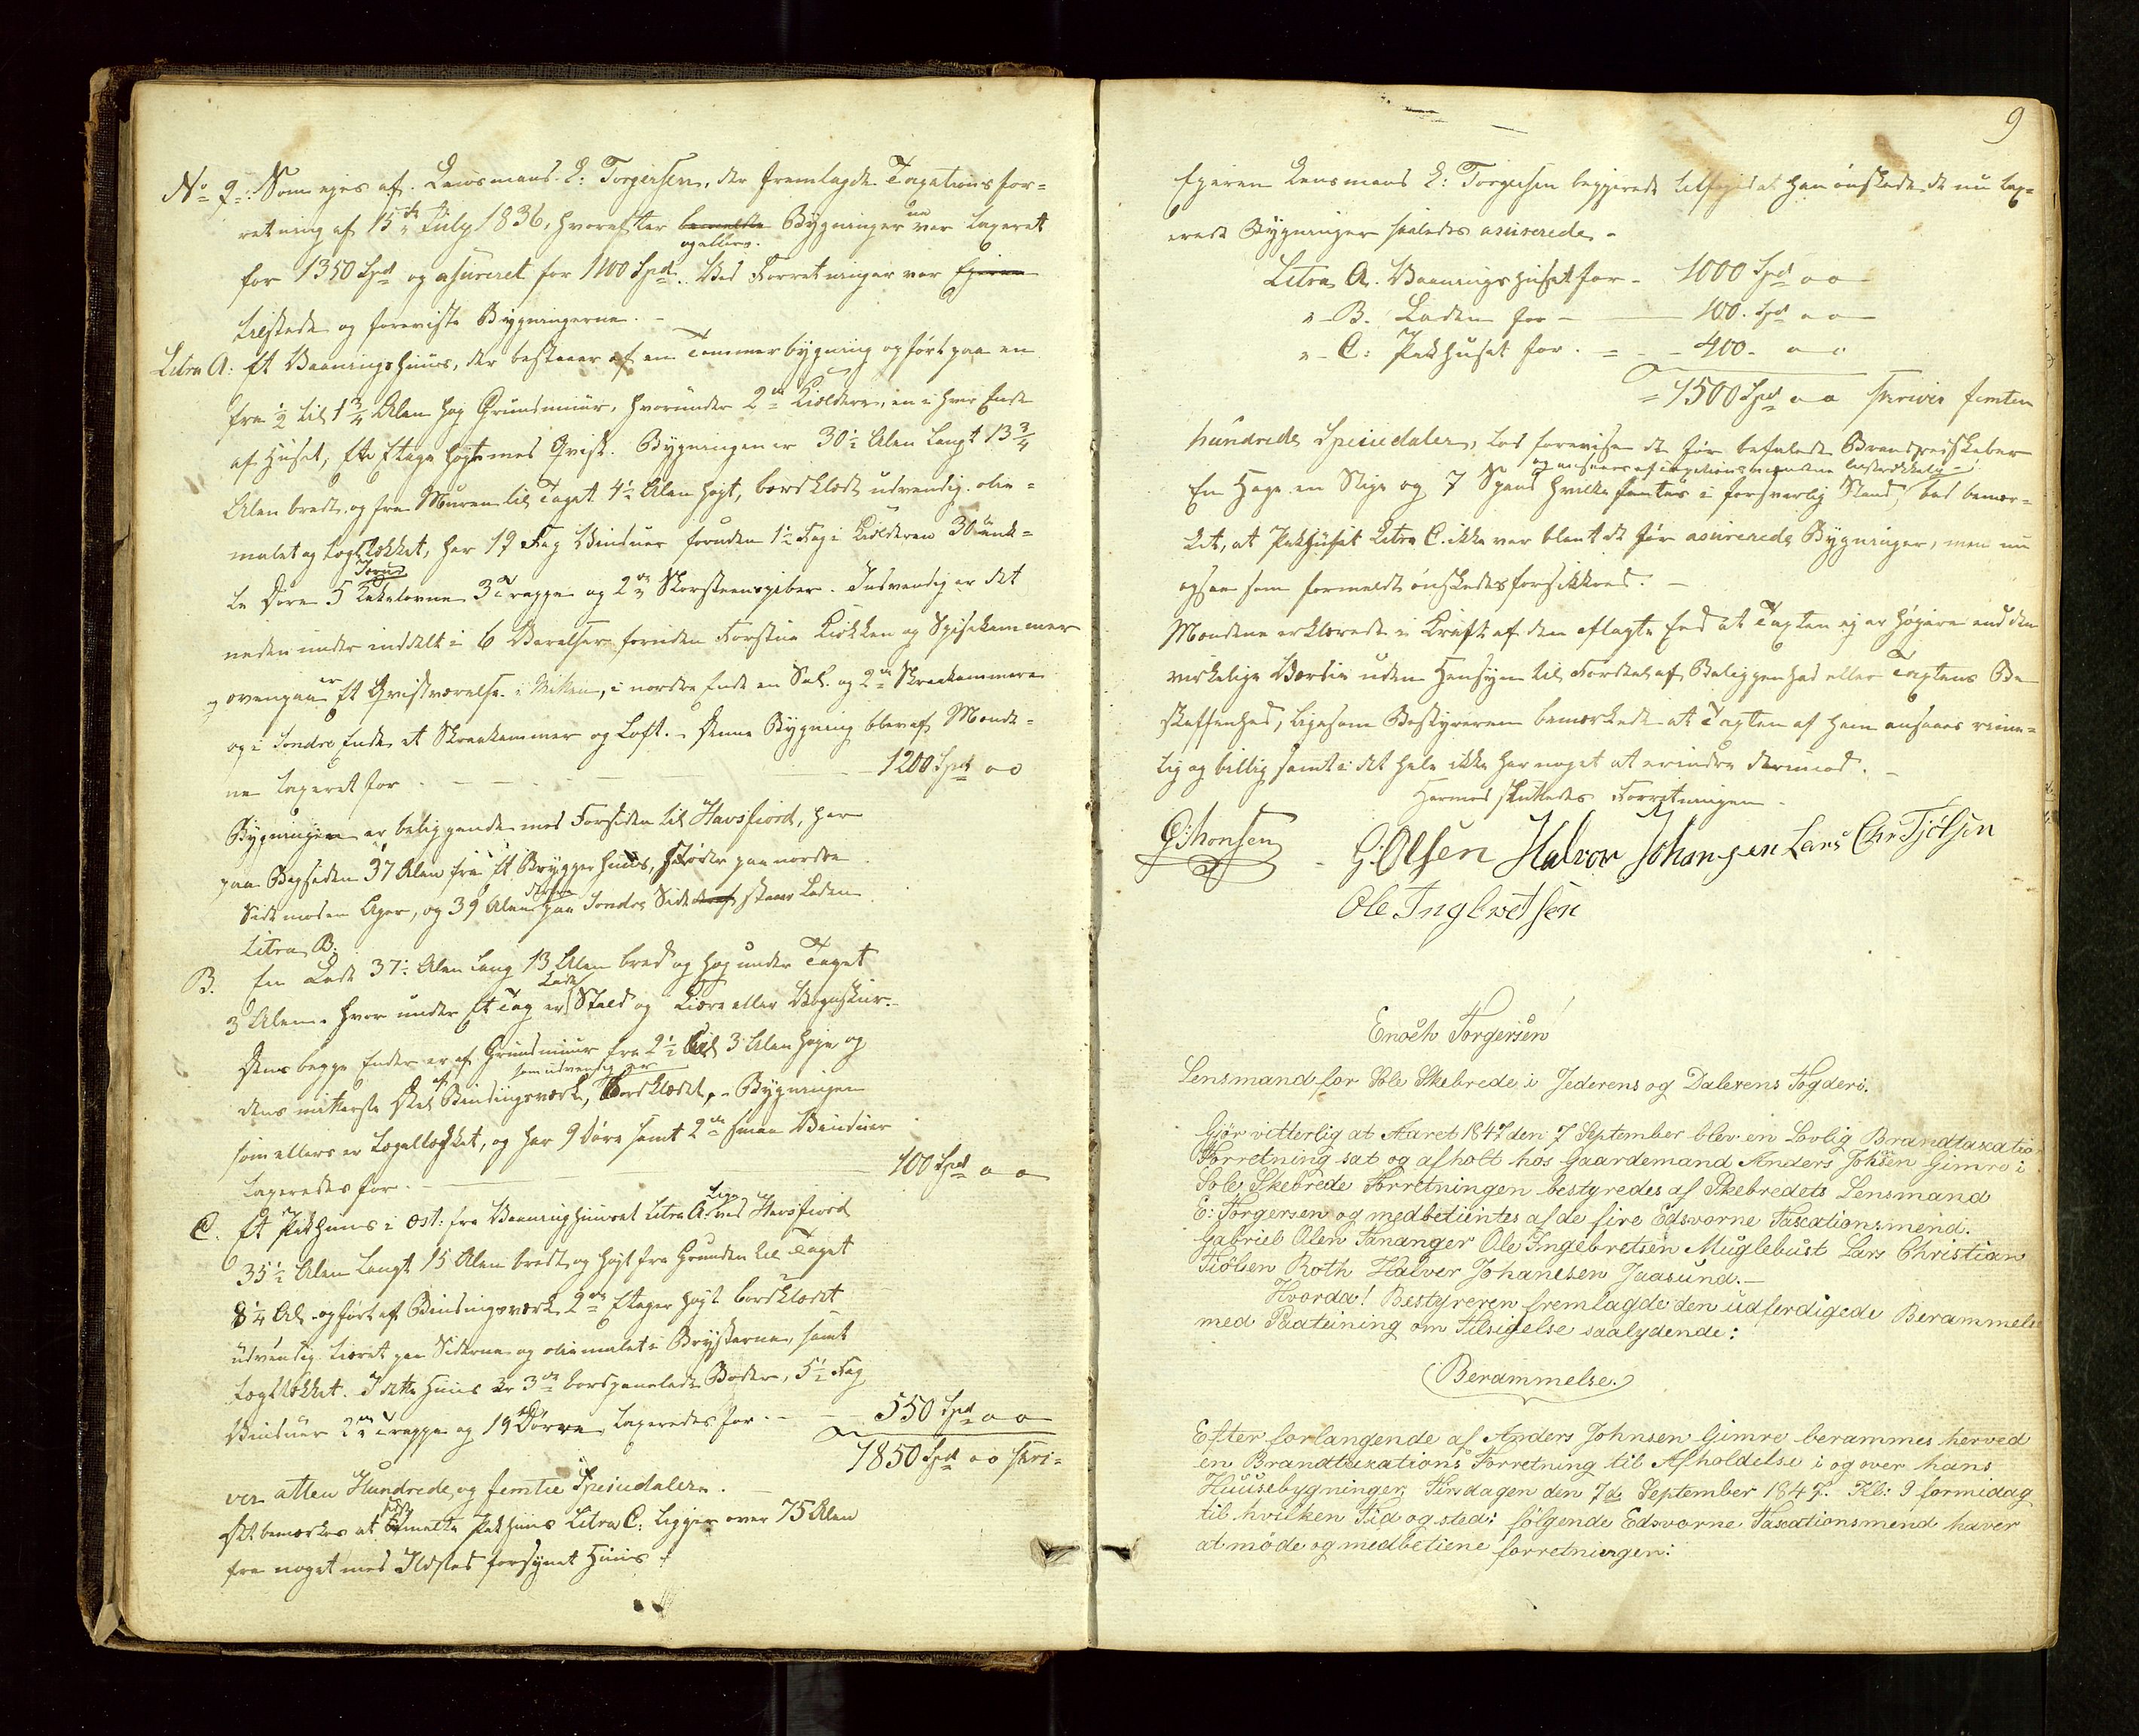 No 9: Som ejes af Lensmand E: Torgersen, der fremlagde Taxationsfor=
retning af 15de July 1836, hvorefter bemeldte Bygninger var taxeret
og ellers
for 1350 Spd og asureret for 1100 Spd. Ved Forretningen var Ejeren
tilstede og foreviste Bygningerne. -
Litra A: Et Vaaningshuus, der bestaaer af en Tømmerbygning opført paa en
fra ½ til 1¾ Alen høj Grundmuur, hvorunder 2de Kieldere, en i hver Ende
af Huset, Et Etage højt med Qvist. Bygningen er 30½ Alen langt 13¾
Alen bredt og fra Muuren til Taget 4½ Alen højt, bordklædt udvendig, olie=
malet og taglækket, har 19 Fag Vinduer foruden 1½ Fag i Kielderen 30 enk=
Jern
le Døre 5 Kakelovne 3de Trapper og 2de Skorsteenspiber. Indvendig er det
neden under inddelt i 6 Værelser foruden Forstue Kiøkken og Spisekammer
og ovenpaa er Et Qvistværelse i Mitten, i nordre Ende en Sal og 2de Skraakammere
og i søndre Ende et Skraakammer og Loft. - Denne Bygning blev af Mænde=
ne taxeret for - - - 1200 Spd " "
Bygningen er beliggende med Forsiden til Havsfiord, har
paa Bagsiden 37 Alen fra Et Bryggerhuus, støder paa nordre
Side mod en Ager, og 39 Alen derfra paa søndre Side deraf staaer Laden
Litra B.
B. En Lade 37½ Alen lang 13 Alen bred og høj under Taget
3 Alen. hvor under Et Tag er Lade Stald og Kiøre eller Vognskuur.
Dens begge Ender er af Grundmuur fra 2½ til 3 Alen høje og
som udvendig er
dens mitterste Deel af Bindingsværk, bordklædet, - Bygningen
som ellers er tagellækket, og har 9 Døre samt 2de smaa Vinduer
taxeredes for - 100 Spd " "
C. Et Pakhuus i Øst: fra Vaaninghuuset Litra A. Lige ved Havsfiord
35½ Alen langt 15 Alen bredt og højt fra Grunden til Taget
8¼ Al: opført af Bindingsværk 2de Etager højt bordklædt
udvendig tiæret paa Siderne og oliemalet i Brysterne, samt
taglækket. I dette Huus er 3de bordpanelede Boder, 5½ Fag
Vinduer 2de Trapper og 19 Dørre, taxeredes for - 550 Spd " "
1850 Spd " " skri=
ver atten Hundrede og femtie Speciedaler.
Det bemærkes at sidst bemeldte Pakhuus Litra C: ligger over 75 Alen
fra noget med Ildsted forsynet Huus.
9
Ejeren Lensmand E: Torgersen begjerede tilføjet at han ønskede de nu tax=
erede Bygninger saaledes asurerede. -
Litra A. Vaaningshuset for - 1000 Spd " "
" - B. Laden for - 100. Spd " "
" - C: Pakhuset for. - 400 - " "
= 1500 Spd " " skriver femten
hundrede Speciedaler, lod forevise de før befalede Brandredskaber
og ansaaes af Taxationsmændene tilstrækkelig -
En Hage en Stige og 7 Spand hvilke fantes i forsvarlig Stand, bad bemær=
ket, at Pakhuset Litra C. ikke var blant de før asurerede Bygninger, men nu
ogsaa som formeldt ønskedes forsikkred. -
Mændene erklærede i Kraft af den aflagte Eed at Taxten ej er højere end den
virkelige Værdie uden Hensyn til Fordeel af Beliggenhed eller Taxtens Be
skaffenhed, ligesom Bestyreren bemærkede at Taxten af ham ansaaes rime=
lig og billig samt i det hele ikke har noget at erindre derimod. -
Hermed sluttedes Forretningen -
G. Olsen Halvor Johansen Lars Chr Tjólsen
Ole Inglbretsen
Enoch Torgersen
Lensmand for Sole Skebrede i Jederens og Dalerens Fogderi.
Gjør vitterlig at Aaret 1847 den 7 September blev en Lovlig Brandtaxatio
Forretning sat og afholt hos Gaardemand Anders Johnsen Gimre i
Sole Skebrede Forretningen bestyredes af Skebredets Lensmand
E: Torgersen og medbetientes af de fire Edsvorne Taxationsmend.
Gabriel Olen Tananger Ole Ingebretsen Muglebust Lars Christian
Tiölsen Roth Halver Johanesen Jaasund. -
Hvorda! Bestyreren fremlagde den udferdigede Berammels
med Paateining om Tilsigelse saalydende:
Berammelse.
Efter forlangende af Anders Johnsen Gimre berammes herved
en Brandtaxations Forretning til Afholdelse i og over hans
Huusebygninger, Tirsdagen den 7de September 1847. Kl: 9 formidag
til hvilken Tid og sted: følgende Edsvorne Taxationsmend haver
at møde og medbetiene forretningen: